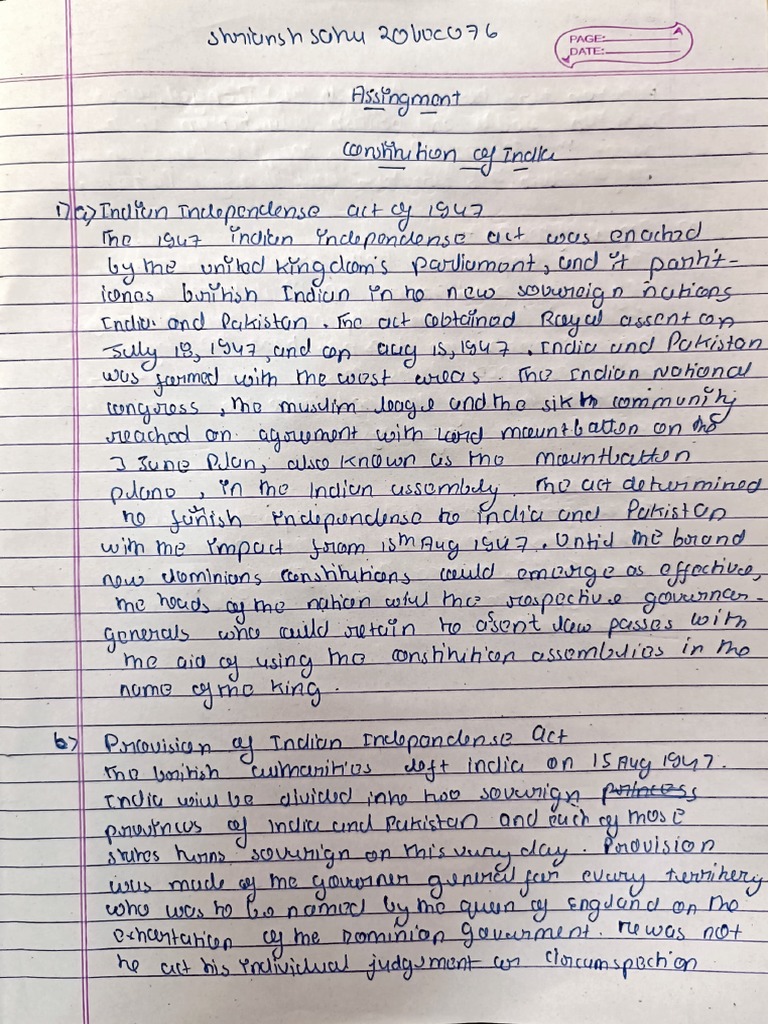 Shriansh Sahu 20
PAGE:
DATE:
Assingment
Constitution of India
1) a) Indian Independense act of 1947
The 1947 indian independense act was enacted
by the united kingdom's parliament, and it partit-
iones british Indian in to new sovereign nations
India and Pakistan. The act obtained Royal assent on
July 18, 1947, and on aug 15, 1947. India and Pakistan
was formed with the west areas. The Indian National
congress, the muslim league and the sikh community
reached on agreement with Lord mountbatten on the
3 June Plan, also known as the mountbatten
plane, in the Indian assembly. The act determined
to funish independense to india and Pakistan
with the impact from 15th Aug 1947. Until the brand
new dominions constitutions could emerge as effective,
the heads of the nation will the respective governer-
generals who could retain to asent law passes with
the aid of using the constitution assemblies in the
name of the King.
b) Provision of Indian Independense Act
The british authorities left india on 15 Aug 1947.
India will be divided into two soverign princess
provinces of India and Pakistan and each of those
states turns soverign on this very day. Provision
was made of the governer general for every territery
who was to be named by the queen of England on the
exhortation of the Dominion Goverment. He was not
to act his individual judgement or circumspection